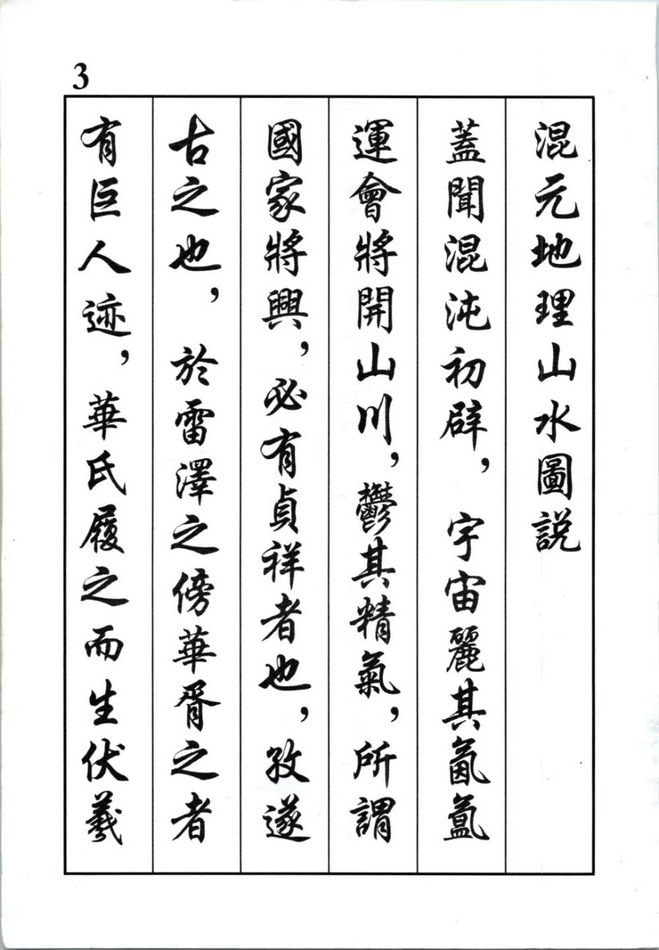 3
混元地理山水圖説
蓋聞混沌初辟，宇宙麗其氤氲
運會將開山川，鬱其精氣，所謂
國家將興，必有貞祥者也，攷遂
古之也，於雷澤之傍華胥之者
有巨人迹，華氏履之而生伏羲